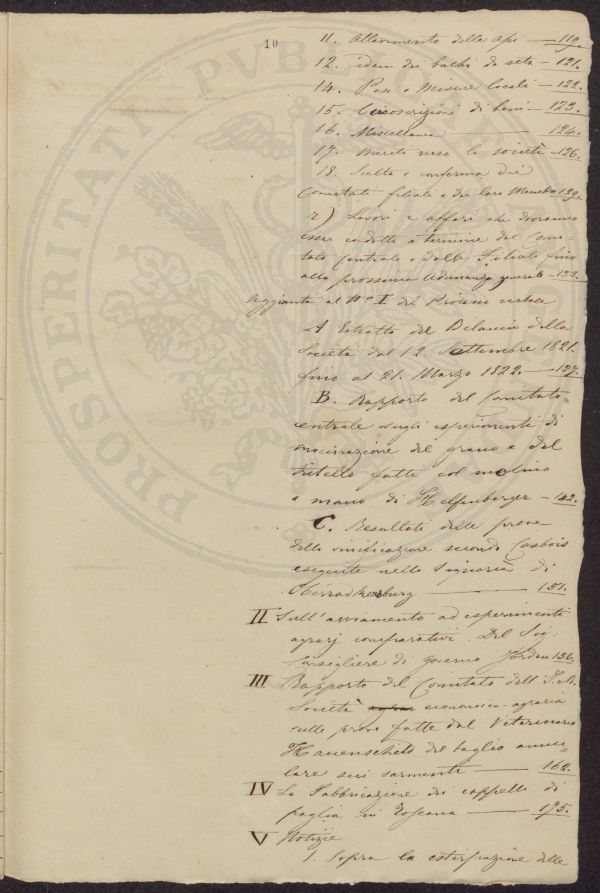 10
11. Allevamento delle api — 119.
12. idem dei bachi da seta — 121.
14. Pesi e Misure locali — 122.
15. Circoscrizioni di beni — 123.
16. Miscellanee — 124.
17. Meriti verso la società — 126.
18. Scelta e conferma dei
Comitati filiali e dei loro Membri 129.
2) Lavori e affari che dovranno
esser condotti a termine dal Comi-
tato centrale e dalle Filiali fino
alla prossima Adunanza generale — 133.
Aggiunte al N.o I del Processo verbale
A Estratto del Bilancio della
Società dal 12. Settembre 1821.
fino al 21. Marzo 1822. — 137.
B. Rapporto del Comitato
centrale sugli esperimenti di
macinazione del grano e del
tritello fatti col molino
a mano di Helfenberger — 142.
C. Resultati delle prove
della vinificazione secondo Casbois
eseguite nella Signoria di
— 151.
II Sull'avviamento ad esperimenti
agrarj comparativi. Del Sig:
Consigliere di governo Jordan 156.
III Rapporto del Comitato dell'I. R.
Società economico-agraria
sulle prove fatte dal Veterinario
del taglio annu-
lare sui sarmenti — 162.
IV La Fabbricazione dei cappelli di
paglia in Toscana — 175.
V Notizie
1. Sopra la estirpazione delle
PROSPERITATI PVBLICAE